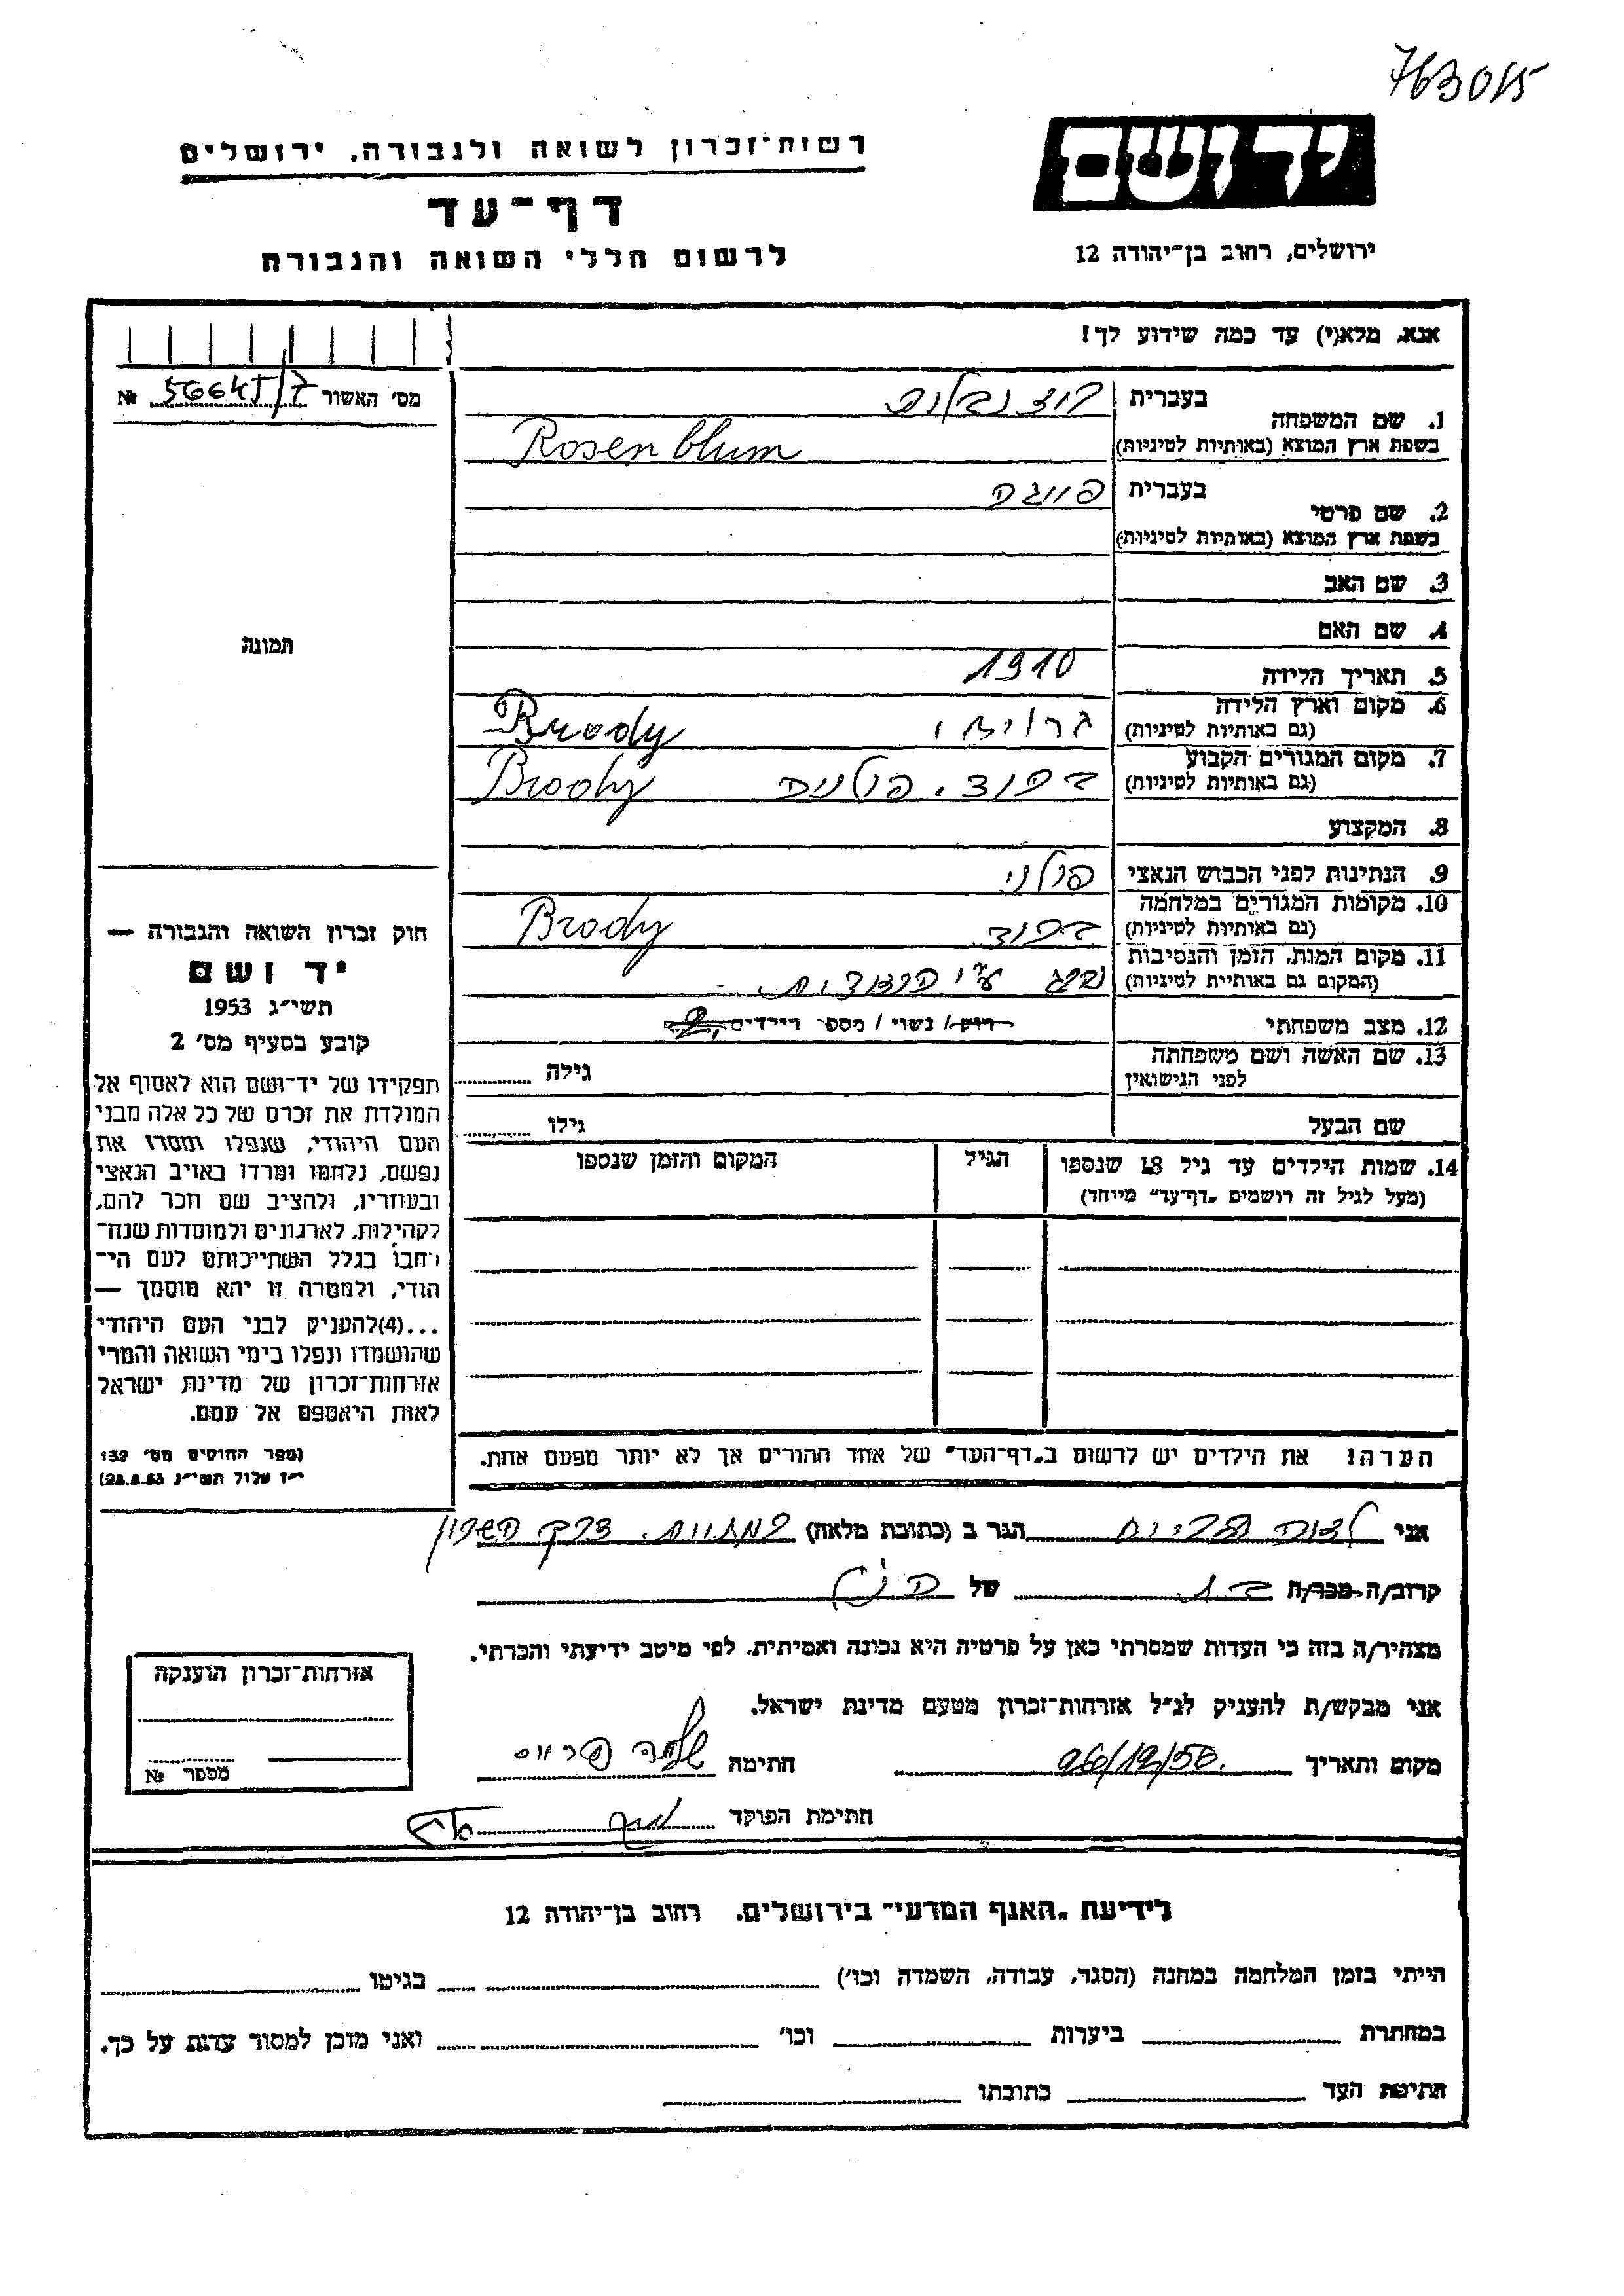 763015
יד ושם
רשות־זכרון לשואה ולגבורה, ירושלים
דף־עד
ירושלים, רחוב בן־יהודה 12
לרשום חללי השואה והגבורה
אנא, מלא(י) עד כמה שידוע לך!
מס׳ האשור № 56645/7
1. שם המשפחה
בעברית רוזנבלום
בשפת ארץ המוצא (באותיות לטיניות) Rosenblum
2. שם פרטי
בעברית
בשפת ארץ המוצא (באותיות לטיניות)
3. שם האב
4. שם האם
תמונה
5. תאריך הלידה 1910
6. מקום וארץ הלידה
(גם באותיות לטיניות) Brody
7. מקום המגורים הקבוע
(גם באותיות לטיניות) Brody
8. המקצוע
9. הנתינות לפני הכבוש הנאצי פולני
10. מקומות המגורים במלחמה
(גם באותיות לטיניות) Brody
11. מקום המות, הזמן והנסיבות
(המקום גם באותיות לטיניות)
12. מצב משפחתי רוק / נשוי / מספר הילדים 2
13. שם האשה ושם משפחתה
לפני הנישואין גילה
שם הבעל גילו
14. שמות הילדים עד גיל 18 שנספו הגיל המקום והזמן שנספו
(מעל לגיל זה רושמים „דף־עד״ מייחד)
חוק זכרון השואה והגבורה —
יד ושם
תשי״ג 1953
קובע בסעיף מס׳ 2
תפקידו של יד־ושם הוא לאסוף אל
המולדת את זכרם של כל אלה מבני
העם היהודי, שנפלו ומסרו את
נפשם, נלחמו ומרדו באויב הנאצי
ובעוזריו, ולהציב שם וזכר להם,
לקהילות, לארגונים ולמוסדות שנח־
רבו בגלל השתייכותם לעם הי־
הודי, ולמטרה זו יהא מוסמך —
...(4) להעניק לבני העם היהודי
שהושמדו ונפלו בימי השואה והמרי
אזרחות־זכרון של מדינת ישראל
לאות היאספם אל עמם.
(ספר החוקים מס׳ 132
י״ז אלול תשי״ג 28.8.53)
הערה! את הילדים יש לרשום ב„דף־העד״ של אחד ההורים אך לא יותר מפעם אחת.
אני הגר ב (כתובת מלאה)
קרוב/ה מכר/ה של
מצהיר/ה בזה כי העדות שמסרתי כאן על פרטיה היא נכונה ואמיתית, לפי מיטב ידיעתי והכרתי.
אני מבקש/ת להעניק לנ״ל אזרחות־זכרון מטעם מדינת ישראל.
מקום ותאריך חתימה
חתימת הפוקד
אזרחות־זכרון הוענקה
מספר №
לידיעת „האגף המדעי״ בירושלים, רחוב בן־יהודה 12
הייתי בזמן המלחמה במחנה (הסגר, עבודה, השמדה וכו׳) בגיטו
במחתרת ביערות וכו׳ ואני מוכן למסור עדות על כך.
חתימת העד כתובתו